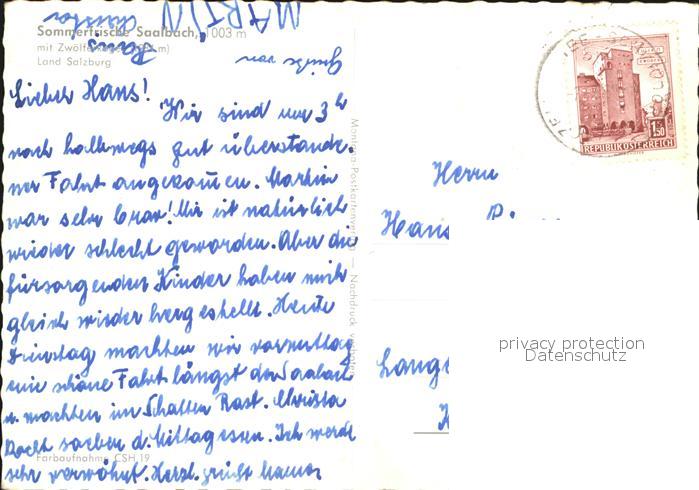 MARTIN
Hans
Grüße von
Sommerfrische Saalbach, 1003 m
mit Zwölfer m)
Land Salzburg
Lieber Hans!
Wir sind um 3 h
nach halbwegs gut überstande-
ner Fahrt angekommen. Martin
war sehr brav! Mir ist natürlich
wieder schlecht geworden. Aber die
fürsorgenden Kinder haben mich
gleich wieder hergestellt. Heute
Dienstag machten wir vormittag
eine schöne Fahrt längst der Saalach
u. machten im Schatten Rast. Christa
kocht soeben d. Mittagessen. Ich werde
sehr verwöhnt. Herzl. grüßt
Farbaufnahme CSH 19
Postkartenverlag — Nachdruck verboten
REPUBLIK ÖSTERREICH
1.50
Herrn
Hans
Lange
privacy protection
Datenschutz